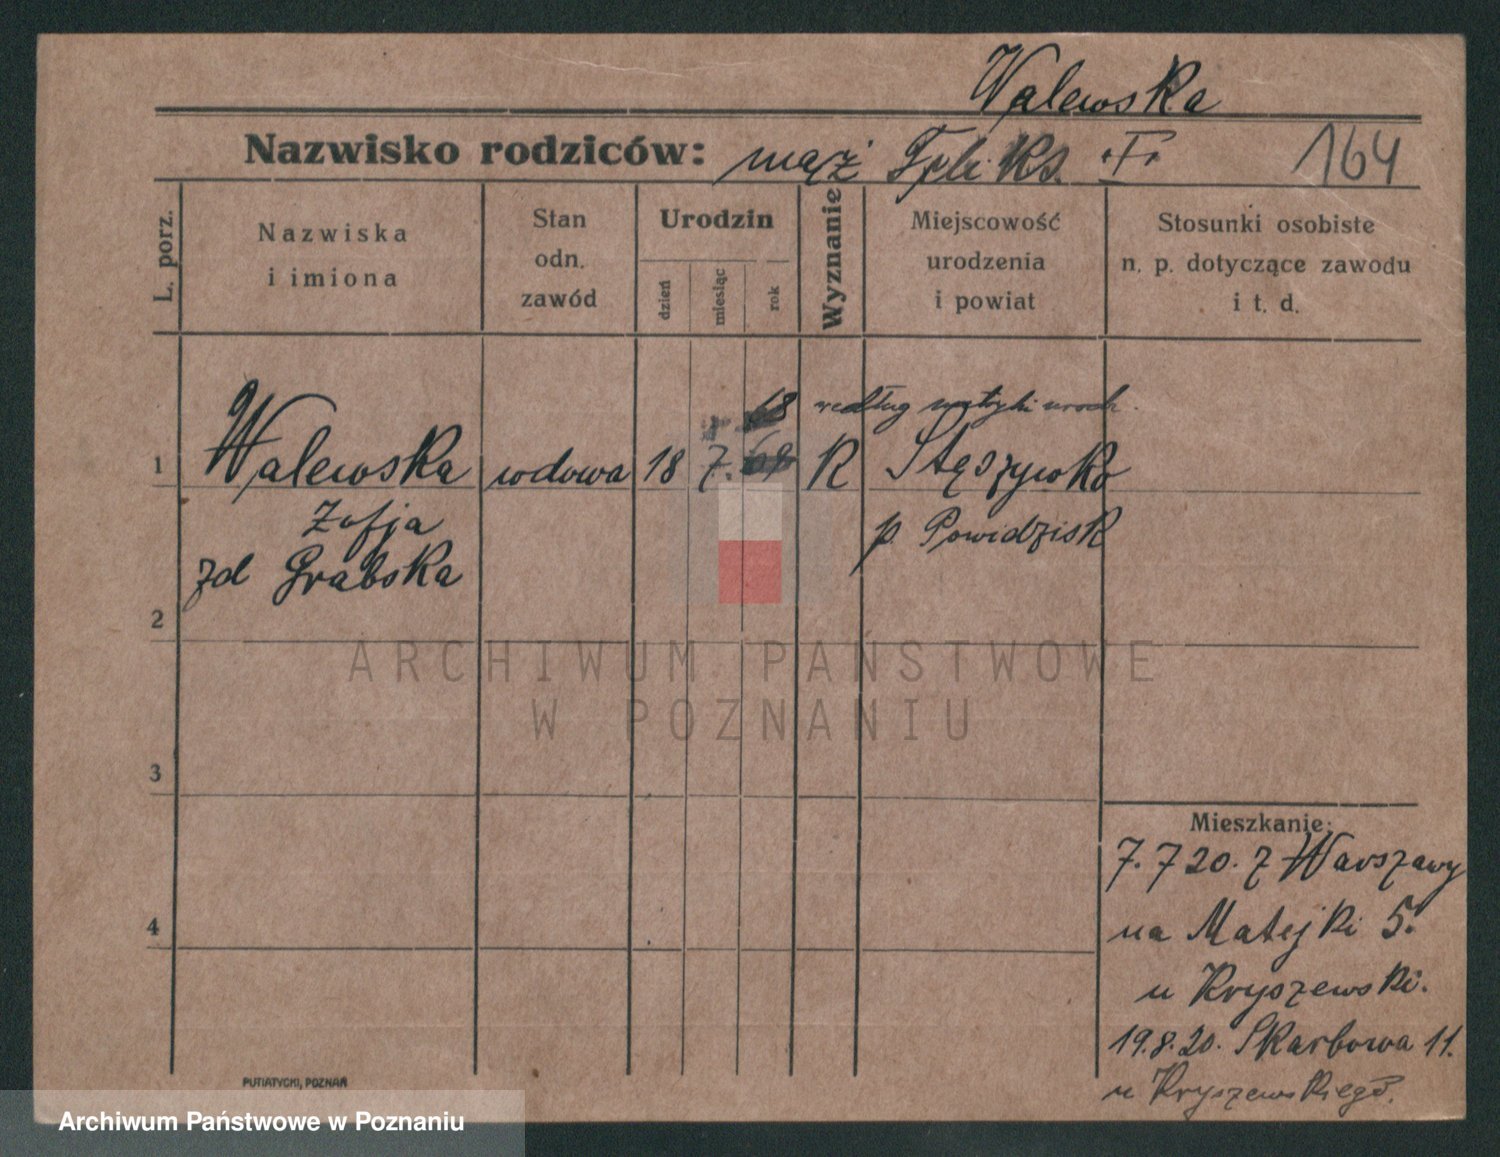 Walewska
Nazwisko rodziców: mąż Feliks. 164
L. porz.
Nazwiska
i imiona
Stan
odn.
zawód
Urodzin
dzień
miesiąc
rok
Wyznanie
Miejscowość
urodzenia
i powiat
Stosunki osobiste
n. p. dotyczące zawodu
i t. d.
68 według metryki urodz.
1 Walewska wdowa 18 7. R
Zofja
p. Powidzisk
zd Grabska
2
ARCHIWUM PAŃSTWOWE
W POZNANIU
3
Mieszkanie:
7. 7 20. z Warszawy
4
na Matejki 5.
u Kryszewski.
19.8.20. Skarbowa 11.
u Kryszewskiego.
PUTIATYCKI, POZNAŃ
Archiwum Państwowe w Poznaniu